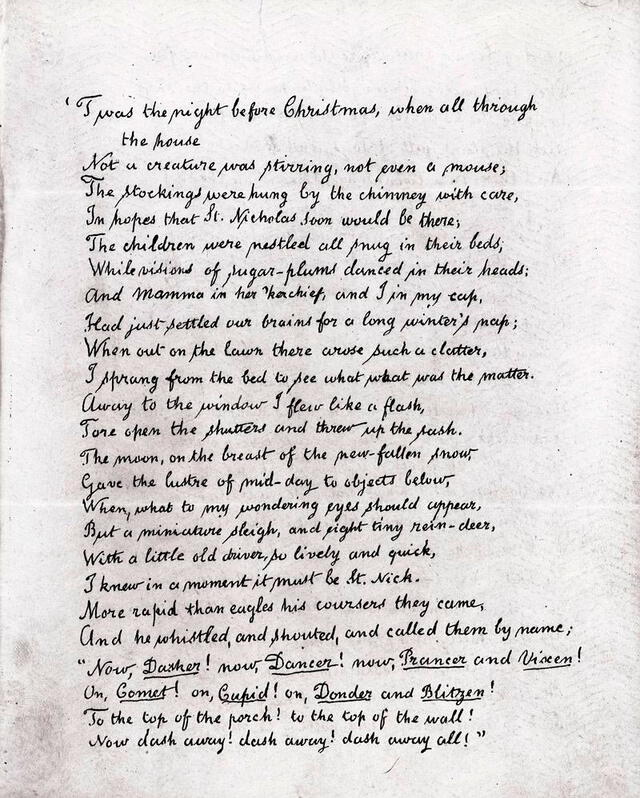 'Twas the night before Christmas, when all through
the house
Not a creature was stirring, not even a mouse;
The stockings were hung by the chimney with care,
In hopes that St. Nicholas soon would be there;
The children were nestled all snug in their beds;
While visions of sugar-plums danced in their heads;
And Mamma in her 'kerchief, and I in my cap,
Had just settled our brains for a long winter's nap;
When out on the lawn there arose such a clatter,
I sprang from the bed to see what what was the matter.
Away to the window I flew like a flash,
Tore open the shutters and threw up the sash.
The moon, on the breast of the new-fallen snow,
Gave the lustre of mid-day to objects below,
When, what to my wondering eyes should appear,
But a miniature sleigh, and eight tiny rein-deer,
With a little old driver, so lively and quick,
I knew in a moment it must be St. Nick.
More rapid than eagles his coursers they came,
And he whistled, and shouted, and called them by name;
"Now, Dasher! now, Dancer! now, Prancer and Vixen!
On, Comet! on, Cupid! on, Donder and Blitzen!
To the top of the porch! to the top of the wall!
Now dash away! dash away! dash away all!"